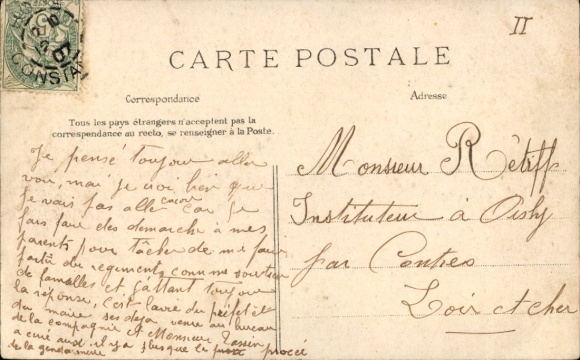 II
CONSTAN
CARTE POSTALE
Correspondance
Adresse
Tous les pays étrangers n'acceptent pas la
correspondance au recto, se renseigner à la Poste.
Je pensé toujour aller
voir, mai je voi bien que
je vais pas aller encore car je
fais faire des demarche a mes
parents pour tâcher de me faire
partir du regiment comme soutien
de familles et j'attant toujour
la réponse, c'est l'avie du prefet et
du maire ses deja venu au bureau
de la compagnie et Monsieur Tassin
a ecrie ausi il y a jusque le procé
de la gendarmerie
Monsieur Rétiff
Instituteur à Oisly
par Contres
Loir et cher